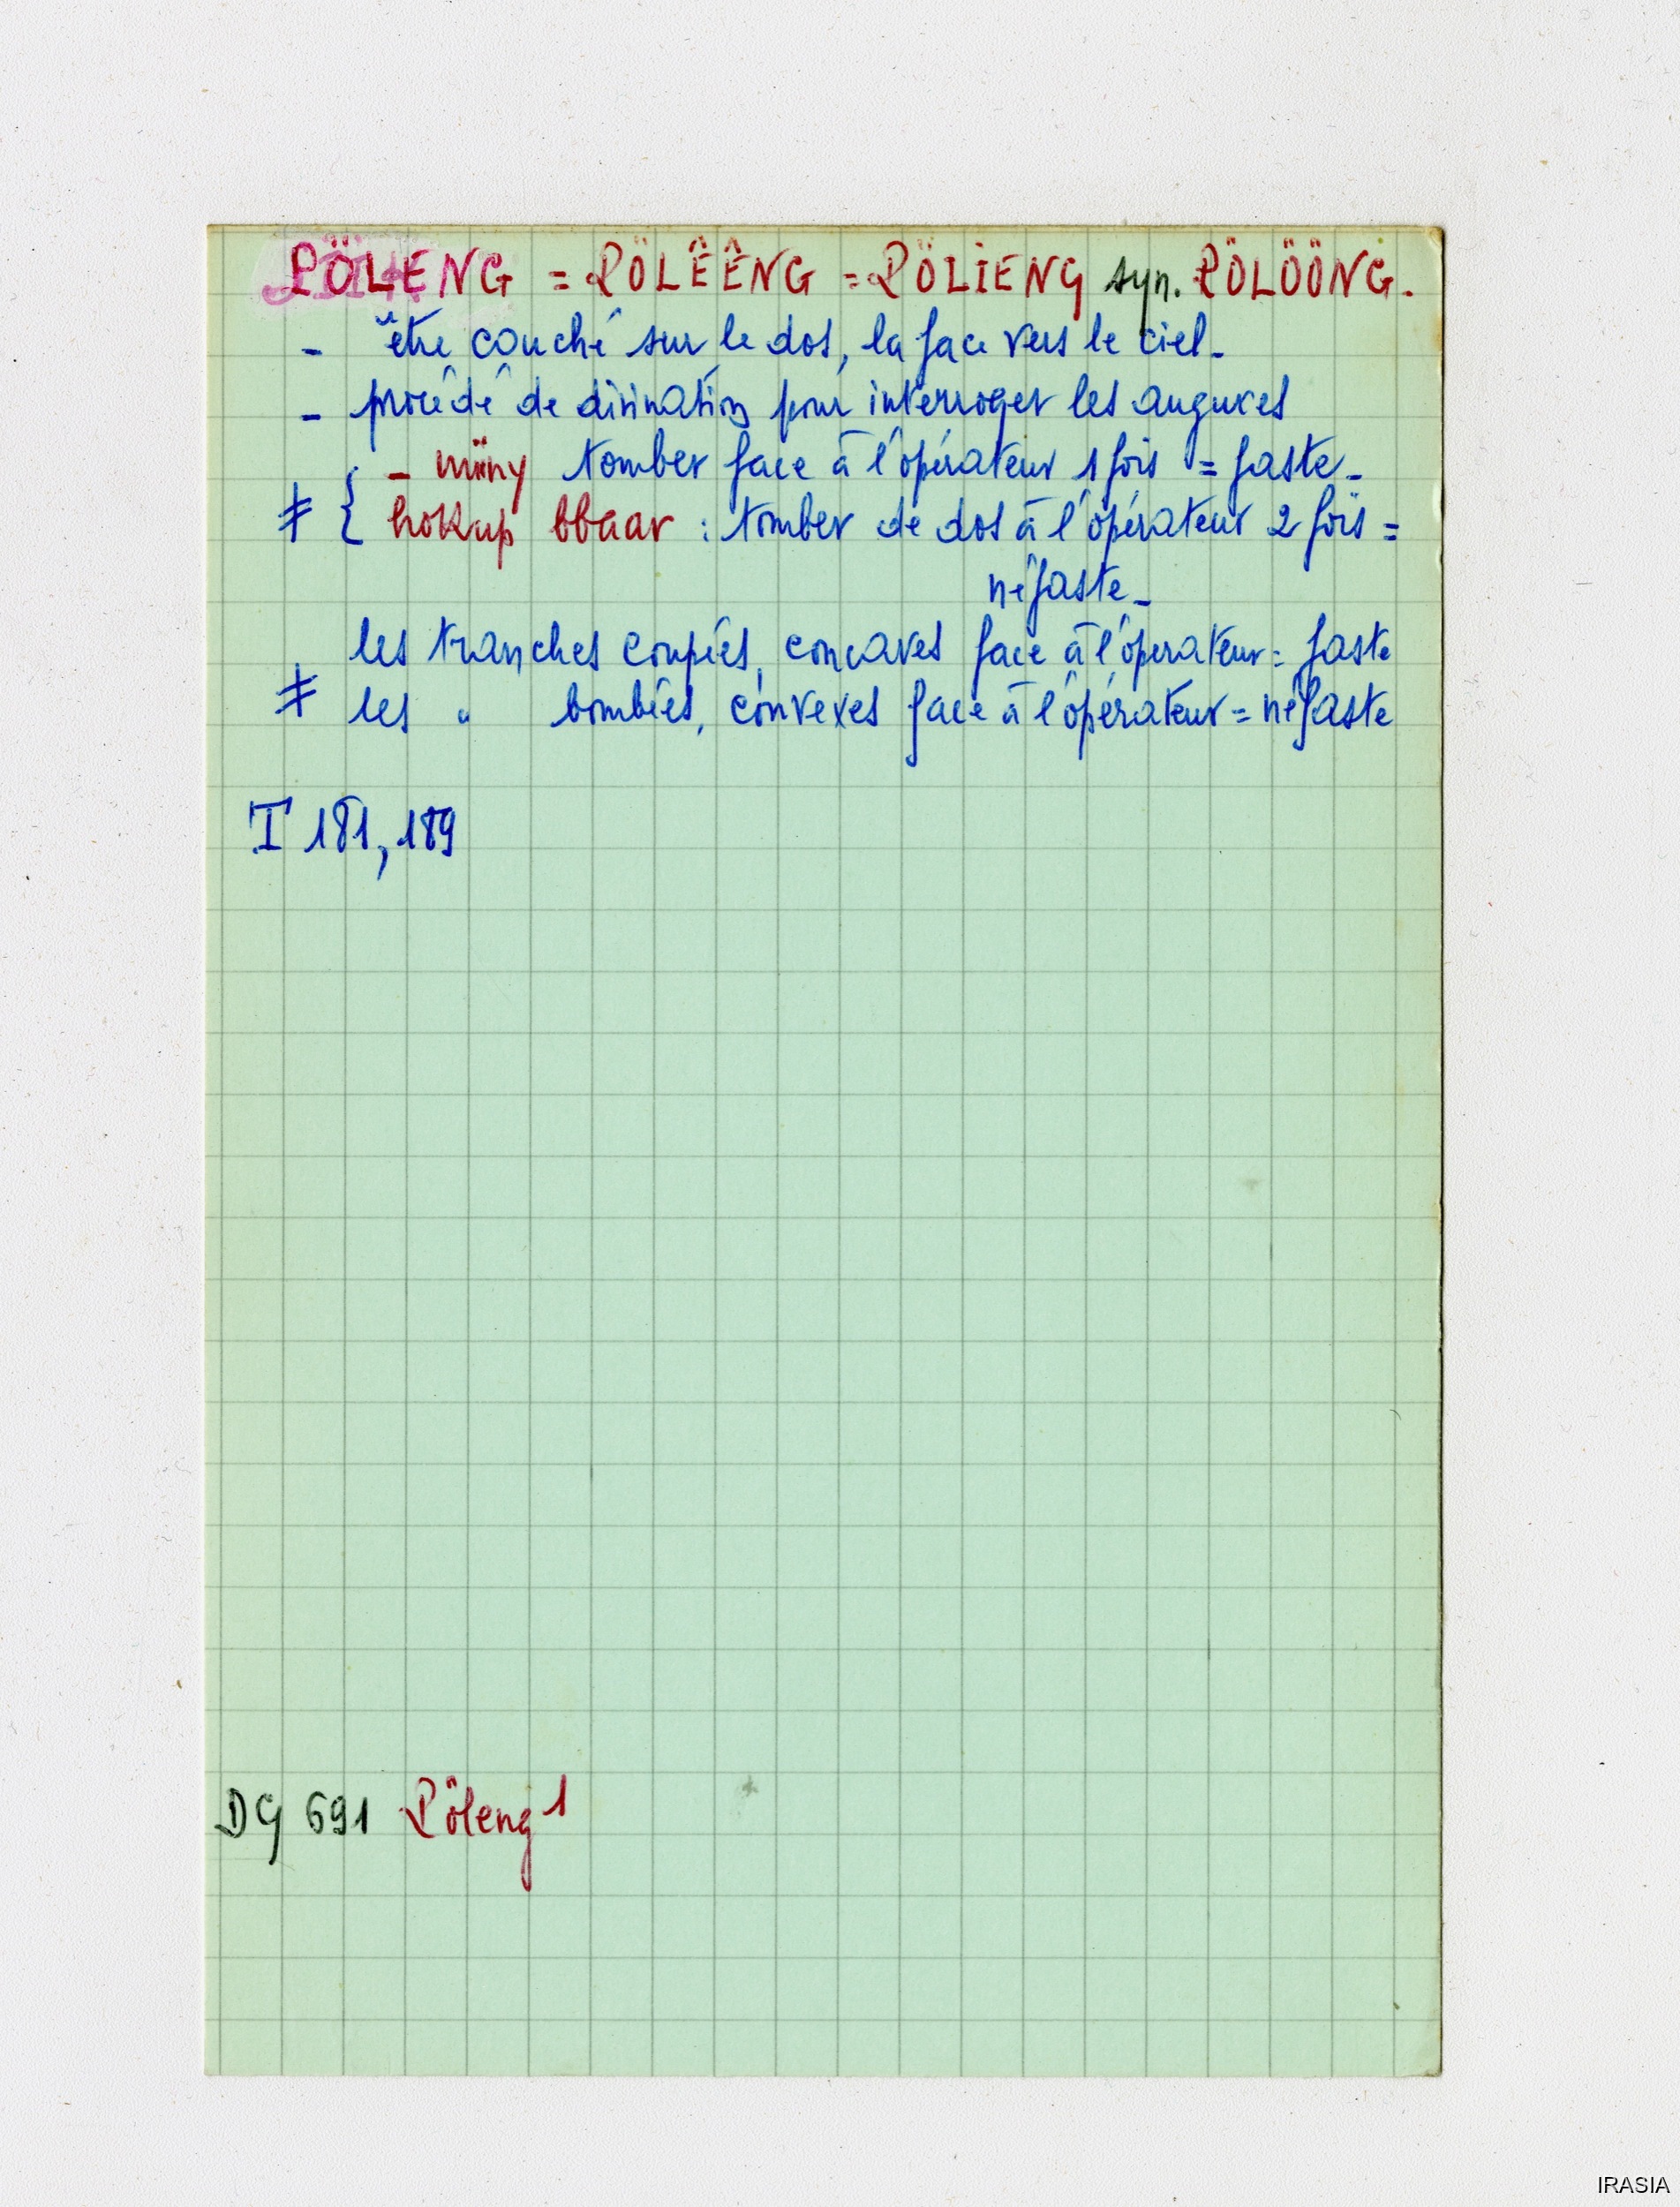 PÖLENG = PÖLÊÊNG = PÖLIENG syn. PÖLÖÖNG.
- être couché sur le dos, la face vers le ciel-
- procédé de divination pour interroger les augures
{ - müny tomber face à l'opérateur 1 fois = faste-
≠ { hokup bbaar : tomber de dos à l'opérateur 2 fois =
néfaste-
les tranches coupées, concaves face à l'opérateur = faste
≠ les " bombées, convexes face à l'opérateur = néfaste
I 181, 189
DG 691 Pöleng 1
IRASIA